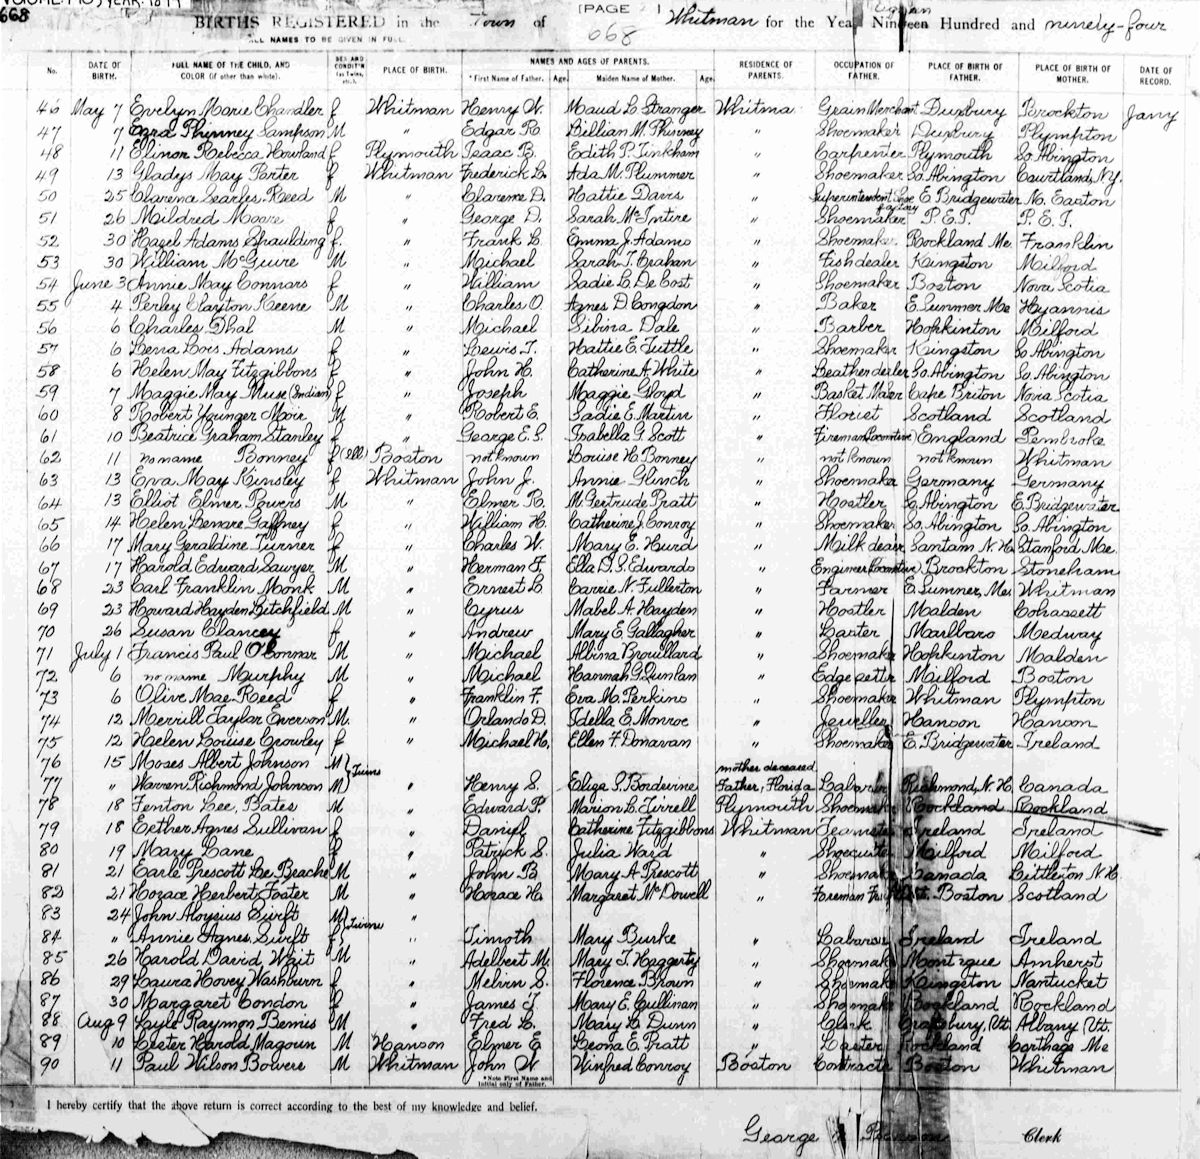 668
BIRTHS REGISTERED in the Town of [PAGE 668] Whitman for the Year Nineteen Eighteen Hundred and ninety-four
ALL NAMES TO BE GIVEN IN FULL.
No. DATE OF BIRTH. FULL NAME OF THE CHILD, AND COLOR (if other than white). SEX AND CONDIT'N (as Twins, etc.). PLACE OF BIRTH. NAMES AND AGES OF PARENTS. *First Name of Father. Age. Maiden Name of Mother. Age. RESIDENCE OF PARENTS. OCCUPATION OF FATHER. PLACE OF BIRTH OF FATHER. PLACE OF BIRTH OF MOTHER. DATE OF RECORD.
46 May 7 Evelyn Marie Chandler f Whitman Henry W. Maud L. Stranger Whitma Grain Merchant Duxbury Brockton Jany
47 7 Ezra Phinney Sampson M " Edgar R. Lillian M. Phinney " Shoemaker Duxbury Plympton
48 11 Elinor Rebecca Howland f Plymouth Isaac B. Edith P. Tinkham " Carpenter Plymouth So. Abington
49 13 Gladys May Porter f Whitman Frederick L. Ada M. Plummer " Shoemaker So. Abington Courtland, N.Y.
50 25 Clarence Searles Reed M " Clarence D. Hattie Davis " Superintendent Shoe factory E. Bridgewater N. Easton
51 26 Mildred Moore f " George D. Sarah McIntire " Shoemaker P.E.I. P.E.I.
52 30 Hazel Adams Spaulding f. " Frank L. Emma J. Adams " Shoemaker Rockland Me. Franklin
53 30 William McGuire M " Michael Sarah T. Crahan " Fish dealer Kingston Milford
54 June 3 Annie May Connors f " William Sadie L. De Cost " Shoemaker Boston Nova Scotia
55 4 Perley Clayton Keene M " Charles O. Agnes D Congdon " Baker E. Sumner Me Hyannis
56 6 Charles Dhal M " Michael Sibina Dale " Barber Hopkinton Milford
57 6 Lena Lois Adams f " Lewis T. Hattie E. Tuttle " Shoemaker Kingston So Abington
58 6 Helen May Fitzgibbons f " John H. Catherine A White " Leather dealer So. Abington So. Abington
59 7 Maggie May Muse (Indian) f " Joseph Maggie Gloyd " Basket Maker Cape Briton Nova Scotia
60 8 Robert Younger Moir M " Robert E. Sadie E. Martin " Florist Scotland Scotland
61 10 Beatrice Graham Stanley f " George E. S. Isabella G. Scott " Fireman (Locomotive) England Pembroke
62 11 no name Bonney f (Ill) Boston not known Louise H. Bonney " not known not known Whitman
63 13 Eva May Kinsley f Whitman John J. Annie Glinch " Shoemaker Germany Germany
64 13 Elliot Elmer Powers M " Elmer R. M. Gertrude Pratt " Hostler So. Abington E. Bridgewater
65 14 Helen Lenore Gaffney f " William H. Catherine J. Conroy " Shoemaker So. Abington So. Abington
66 17 Mary Geraldine Turner f " Charles W. Mary E. Hurd " Milk dealer N. H. Me.
67 17 Harold Edward Sawyer M " Herman F Ella D. S. Edwards " Engineer (Locomotive) Brockton Stoneham
68 23 Carl Franklin Monk M " Ernest L. Carrie N. Fullerton " Farmer E. Sumner, Me. Whitman
69 23 Howard Hayden Litchfield M " Cyrus Mabel A. Hayden " Hostler Malden Cohassett
70 26 Susan Clancey f " Andrew Mary E. Gallagher " Laster Marlboro Medway
71 July 1 Francis Paul O'Connor M " Michael Albina Brouillard " Shoemaker Hopkinton Malden
72 6 no name Murphy M " Michael Hannah G. Quinlan " Edge setter Milford Boston
73 6 Olive Mae Reed f " Franklin F. Eva M. Perkins " Shoemaker Whitman Plympton
74 12 Merrill Taylor Everson M. " Orlando D. Idella E. Monroe " Jeweller Hanson Hanson
75 12 Helen Louise Crowley f " Michael H. Ellen F. Donavan " Shoemaker E. Bridgewater Ireland
76 15 Moses Albert Johnson M } Twins mother deceased
77 " Warren Richmond Johnson M } " Henry S. Eliza S. Bordwine Father, Florida Laborer Richmond, N.H. Canada
78 18 Fenton Lee Bates M " Edward P. Marion L. Tirrell Plymouth Shoemaker Rockland Rockland
79 18 Esther Agnes Sullivan f " Daniel Catherine Fitzgibbons Whitman Teamster Ireland Ireland
80 19 Mary Lane f " Patrick S. Julia Ward " Milford Milford
81 21 Earle Prescott Le Brache M " John B. Mary A Prescott " Shoemaker Canada Littleton N.H.
82 21 Horace Herbert Foster M " Horace H. Margaret McDowell " Foreman Boston Scotland
83 24 John Aloysius Swift M } Twins "
84 " Annie Agnes Swift f } " Timoth Mary Burke " Laborer Ireland Ireland
85 26 Harold David Wait M " Adelbert M. Mary T. Haggerty " Shoemaker Montague Amherst
86 29 Laura Hovey Washburn f " Melvin S. Florence Brown " Shoemaker Kingston Nantucket
87 30 Margaret Condon f " James J Mary E. Cullinan " Shoemaker Rockland Rockland
88 Aug 9 Lyle Raymon Bemis M " Fred L. Mary L Dunn " Clerk Craftsbury, Vt. Albany Vt.
89 10 Lester Harold Magoun M Hanson Elmer E Leona E. Pratt " Laster Rockland Carthage Me
90 11 Paul Wilson Bowers M Whitman John W Winifred Conroy Boston Contractor Boston Whitman
*Note First Name and Initial only of Father.
I hereby certify that the above return is correct according to the best of my knowledge and belief.
George Clerk